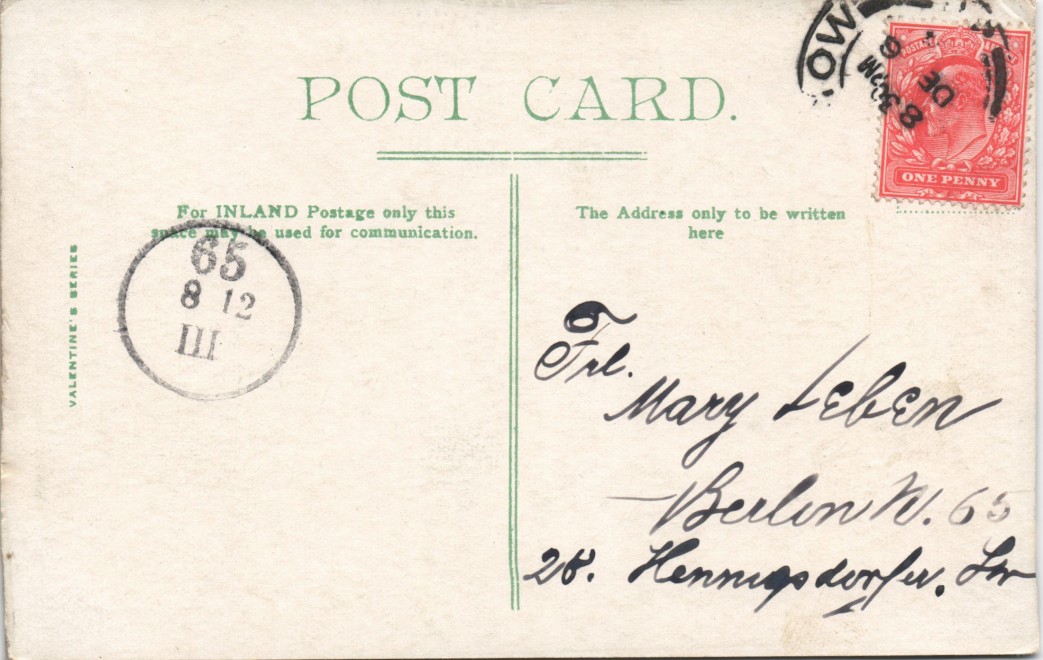 POST CARD.
For INLAND Postage only this
space may be used for communication.
The Address only to be written
here
VALENTINE'S SERIES
OW
8 30PM
DE
6
POSTAGE
ONE PENNY
65
8 12
III
Frl.
Mary Leben
Berlin N. 65
28. Hennigsdorfer.